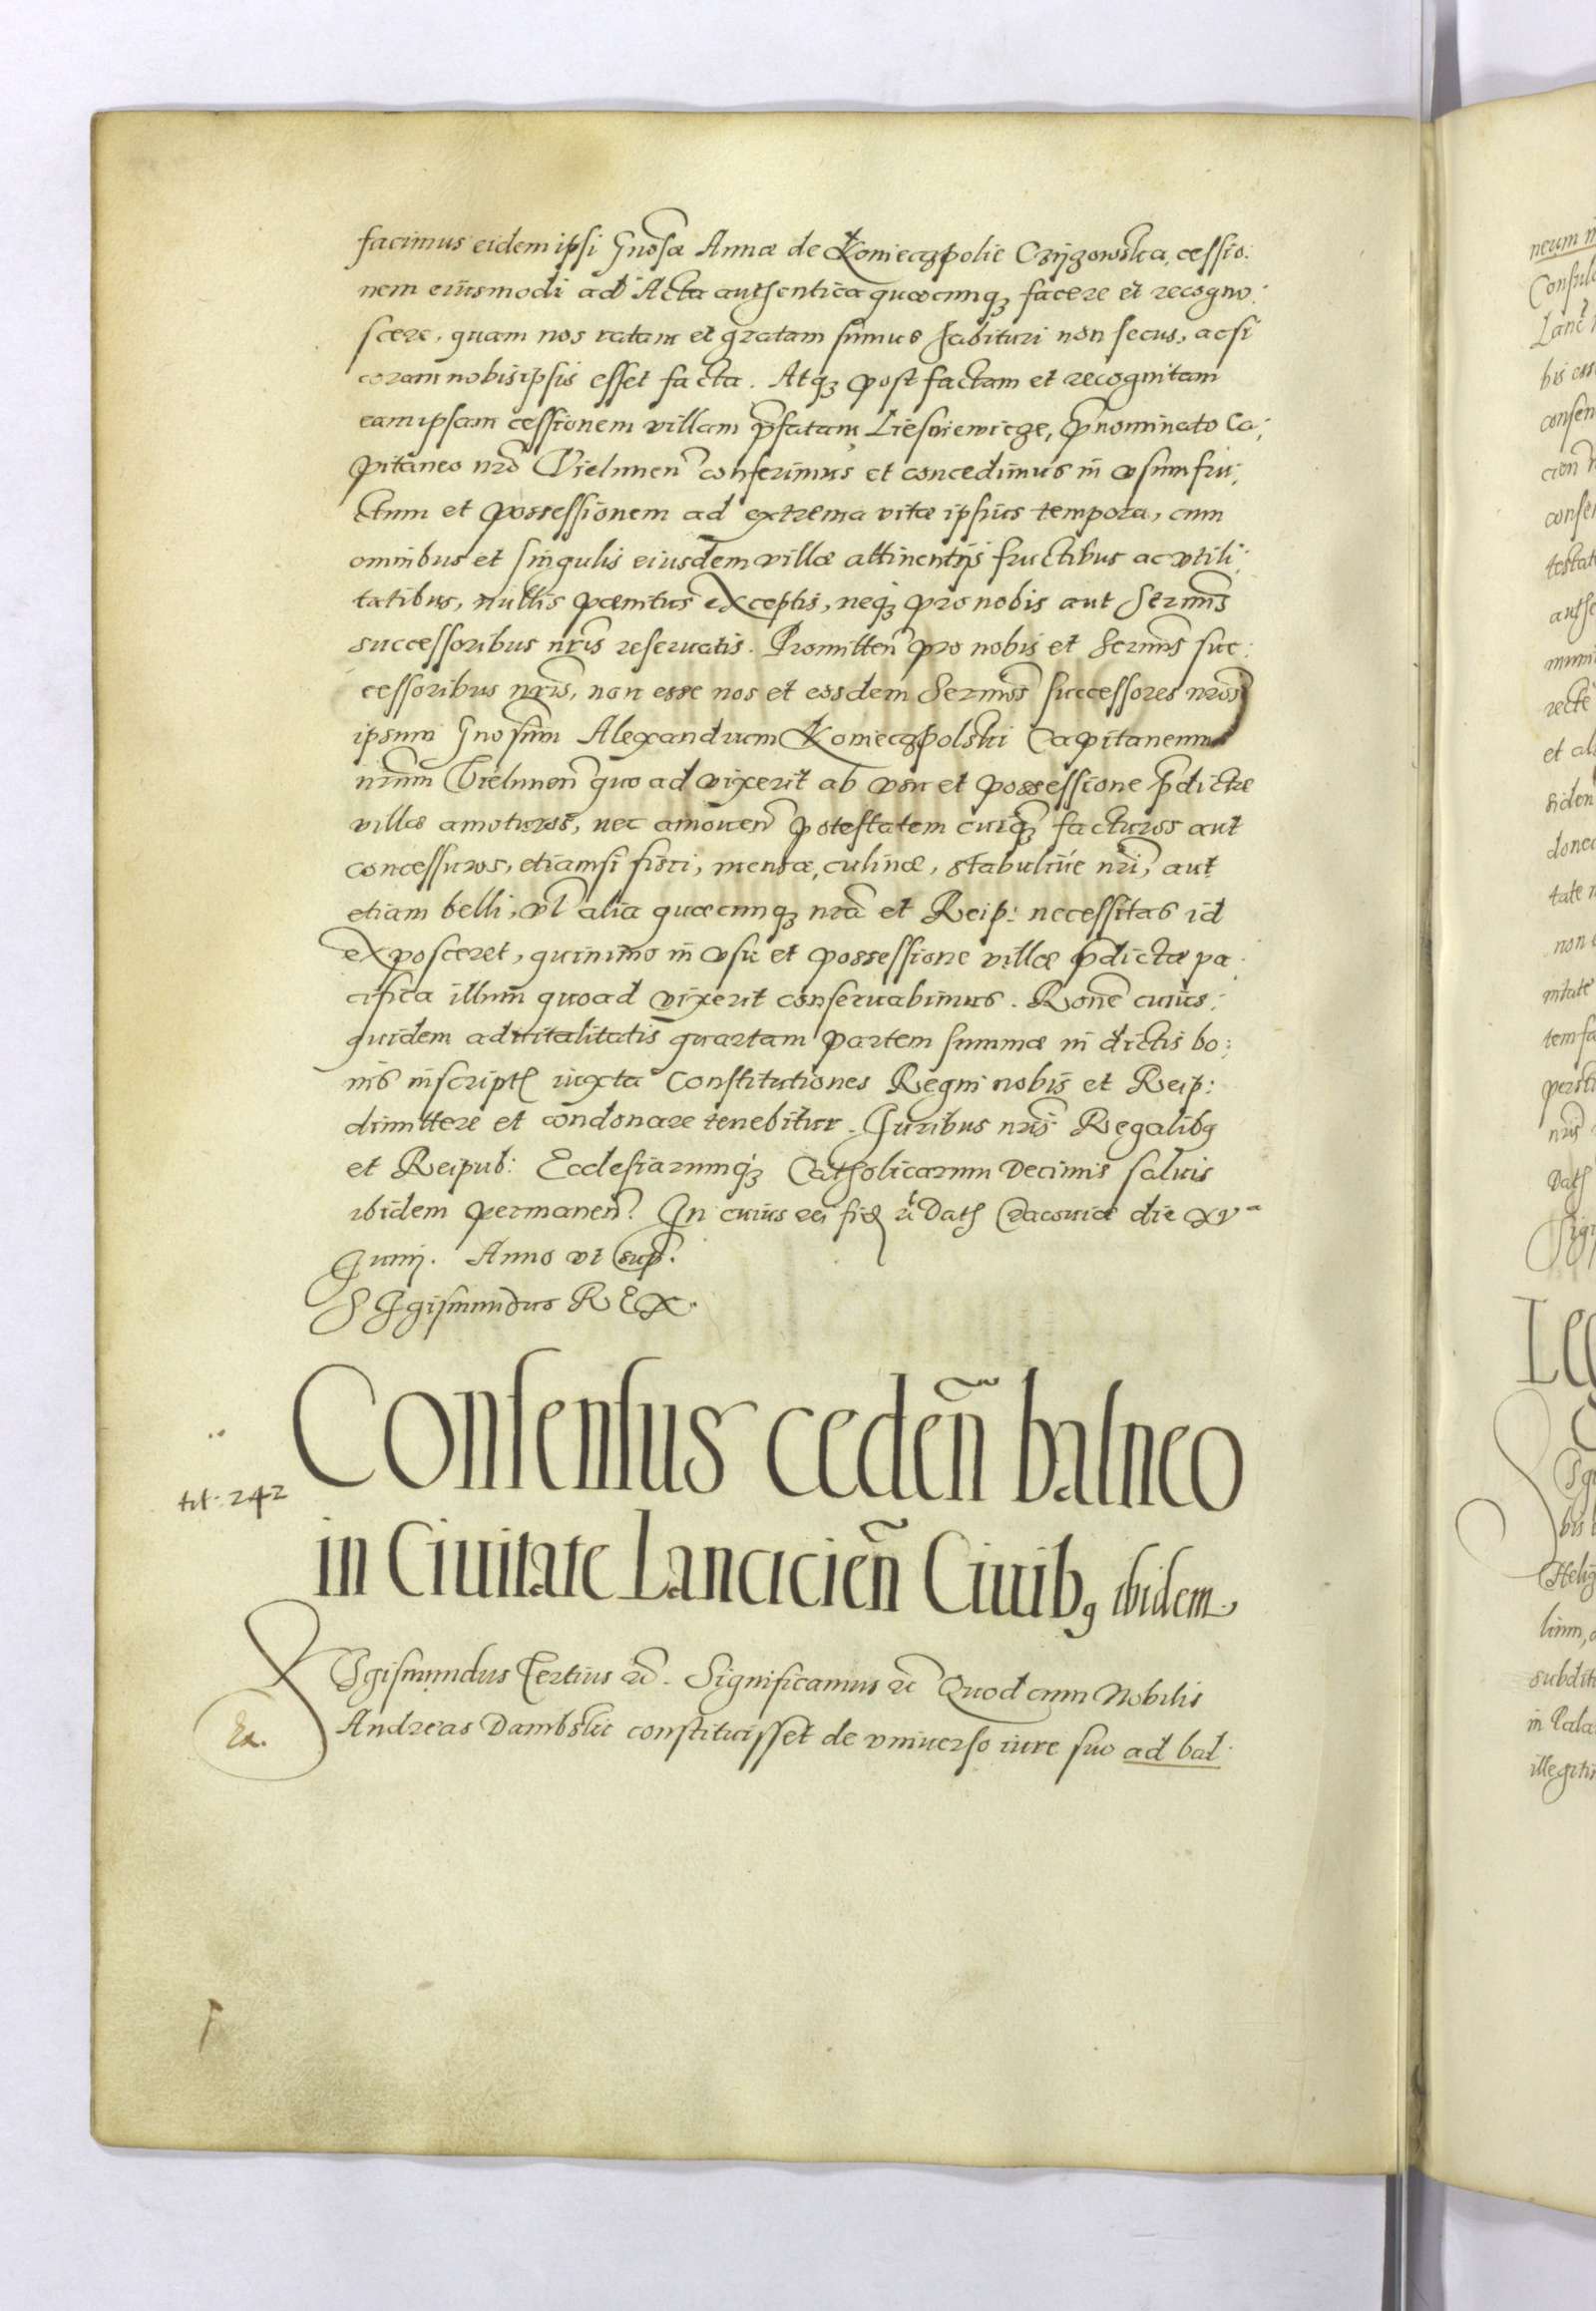 facimus eidem ipsi Gnosæ Annæ de Konieczpolie Czyżowska, cessio:
nem eiusmodi ad Acta authentica quæcunqȝ facere et recogno:
scere, quam nos ratam et gratam sumus habituri non secus, ac si
coram nobis ipsis esset facta. Atqȝ post factam et recognitam
eam ipsam cessionem villam p̃fatam Liesniewicze, p̃nominato Ca:
pitaneo nr̃o Vielunen̄ conferimus et concedimus in vsumfru:
ctum et possessionem ad extrema vitæ ipsius tempora, cum
omnibus et singulis eiusdem villæ attinentijs fructibus ac vtili:
tatibus, nullis pœnitus exceptis, neqȝ pro nobis aut Serm̄is
successoribus nr̄is reseruatis. Promitten̄ pro nobis et Serm̄is suc:
cessoribus nr̄is, non esse nos et eosdem Serm̄os successores nr̄os
ipsum Gnosum Alexandrum Konieczpolski Capitaneum
nr̄um Vielunen̄ quo ad vixerit ab vsu et possessione p̃dictæ
villæ amoturos, nec amouen̄ potestatem cuiqȝ facturos aut
concessuros, etiamsi fisci, mensæ, culinæ, stabuliue nr̄i, aut
etiam belli, vl alia quæcunqȝ nr̄a et Reip: necessitas id
exposceret, quinimo in vsu et possessione villæ p̃dictæ pa:
cifica illum quoad vixerit conseruabimus. Rōne cuius:
quidem aduitalitatis quartam partem summæ in dictis bo:
nis inscriptę iuxta Constitutiones Regni nobis et Reip:
dimittere et condonare tenebitur. Juribus nr̄is Regalibꝯ
et Reipub: Ecclesiarumqȝ Catholicarum Decimis saluis
ibidem permanen̄. In cuius rei fidē &c Datȩ Cracouiæ die XVa
Junij. Anno vt sup̃.
SIgismundus REX.
Consensus ceden̄ balneo
tit. 242
in Ciuitate Lancicien̄ Ciuibꝯ ibidem.
SIgismundus Tertius &c. Significamus &c Quod cum Nobilis
Ex.
Andreas Dambski constituisset de vniuerso iure suo ad bal: